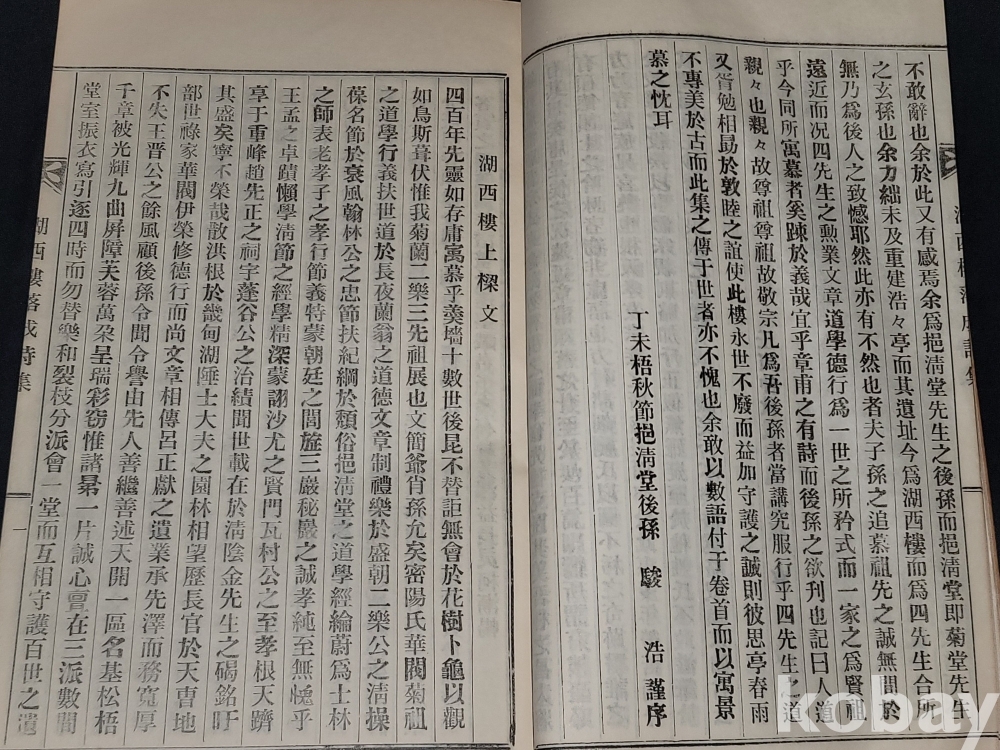 不敢辭也余於此又有感焉余爲挹淸堂先生之後孫而挹淸堂即菊堂先生
之玄孫也余力絀未及重建浩々亭而其遺址今爲湖西樓而爲四先生合所
無乃爲後人之致憾耶然此亦有不然也者夫子孫之追慕祖先之誠無間於
遠近而况四先生之勳業文章道學德行爲一世之所矜式而一家之爲賢祖
乎今同所寓慕者奚踈於義哉宜乎章甫之有詩而後孫之欲刋也記曰人道
親々也親々故尊祖尊祖故敬宗凡爲吾後孫者當講究服行乎四先生之道
又胥勉相勗於敦睦之誼使此樓永世不廢而益加守護之誠則彼思亭春雨
不專美於古而此集之傳于世者亦不愧也余敢以數語付于卷首而以寓景
慕之忱耳
丁未梧秋節挹淸堂後孫 駿浩謹序
湖西樓上樑文
四百年先靈如存庸寓慕乎羹墻十數世後昆不替詎無會於花樹卜龜以觀
如鳥斯葺伏惟我菊蘭二樂三先祖展也文簡爺肖孫允矣密陽氏華閥菊祖
之道學行義扶世道於長夜蘭翁之道德文章制禮樂於盛朝二樂公之淸操
葆名節於衰風翰林公之忠節扶紀綱於頹俗挹淸堂之道學經綸蔚爲士林
之師表老孝子之孝行節義特蒙朝廷之閭旌三嚴秘巖之誠孝純至無愧乎
王孟之卓蹟懶學淸節之經學精深蒙詡沙尤之賢門瓦村公之至孝根天躋
享于重峰趙先正之祠宇蓬谷公之治績聞世載在於淸陰金先生之碣銘盱
其盛矣寧不榮哉散洪根於畿甸湖陲士大夫之園林相望歷長官於天曺地
部世祿家華閥伊榮修德行而尚文章相傳呂正獻之遺業承先澤而務寬厚
不失王晋公之餘風顧後孫令聞令譽由先人善繼善述天開一區名基松梧
千章被光輝九曲屛障芙蓉萬朶呈瑞彩窃惟諸昴一片誠心亶在三派數間
堂室振衣寫引逐四時而勿替樂和裂枝分派會一堂而互相守護百世之遺
湖西樓落成詩集
一